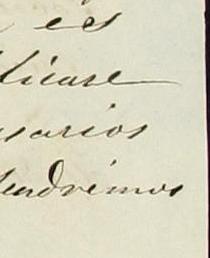 es
ticase
sarios
tendremos